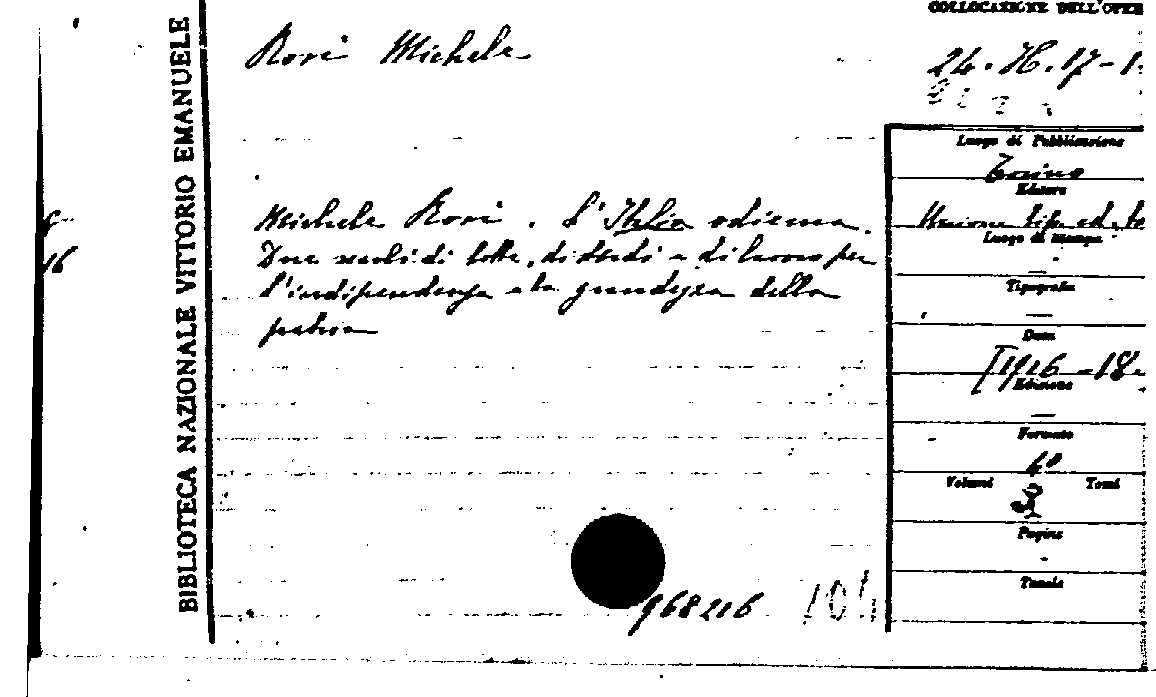 COLLOCAZIONE DELL'OPER
BIBLIOTECA NAZIONALE VITTORIO EMANUELE
Rosi Michele
24. H. 17-1
Luogo di Pubblicazione
Torino
Editore
Michele Rosi. L'Italia odierna.
Unione tip. ed. to
Luogo di Stampa
Due secoli di lotte, di studi e di lavoro per
16
l'indipendenza e la grandezza della
Tipografia
patria
Data
[1916-18
Edizione
Formato
4º
Volumi Tomi
Pagine
Tavole
968216 104